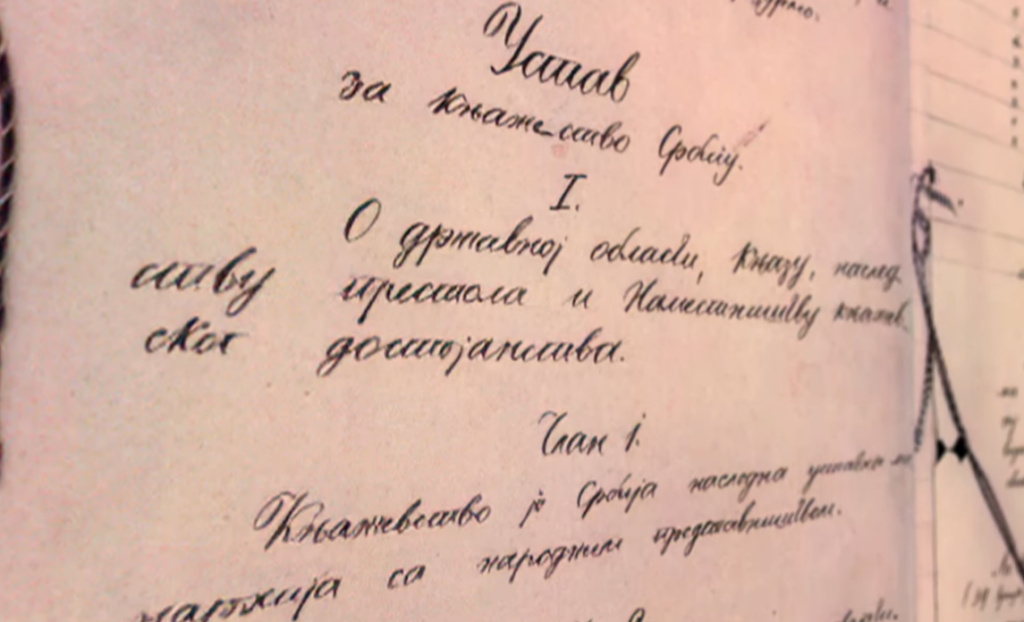 Устав
за књажество Србију.
I.
О државној области, Књазу, наслед
ству престола и Намесништву књажев
ског достојанства.
Члан 1.
Књажевство је Србија наследна уставна мо
нархија са народним представништвом.